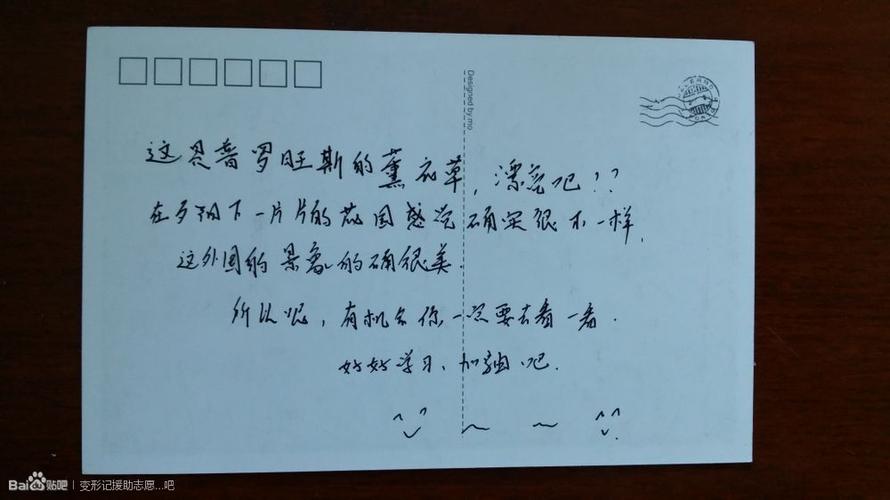 Designed by.mo
这是普罗旺斯的薰衣草,漂亮吧!?
在夕阳下一片片的花园感觉确实很不一样.
这外国的景象的确很美.
所以呢,有机会你一定要去看一看.
好好学习、加油吧.
Bai 贴吧 | 变形记援助志愿...吧